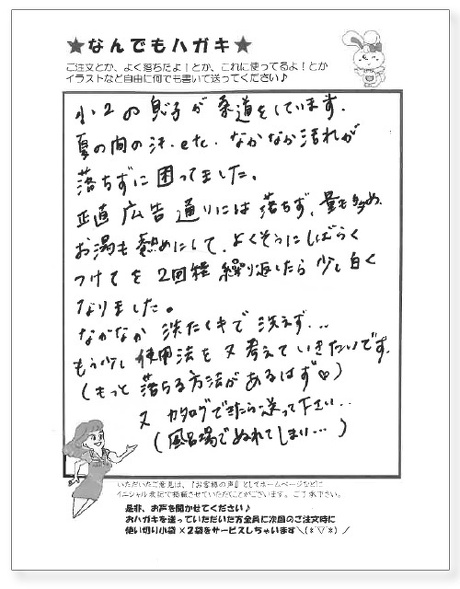 ★なんでもハガキ★
ご注文とか、よく落ちたよ！とか、これに使ってるよ！とか
イラストなど自由に何でも書いて送ってください♪
小2の息子が柔道をしています.
夏の間の汗.etc. なかなか汚れが
落ちずに困ってました。
正直広告通りには落ちず、量も多め、
お湯も熱めにして、よくそうにしばらく
つけてを2回程繰り返したら少し白く
なりました。
なかなか洗たくキで洗えず...
もう少し使用法を又考えていきたいです.
(もっと落ちる方法があるはず♡)
又カタログできたら送って下さい...
(風呂場でぬれてしまい...)
いただいたご意見は、『お客様の声』としてホームページなどに
イニシャル表記で掲載させていただくことがございます。ご了承下さい。
是非、お声を聞かせてください♪
おハガキを送っていただいた方全員に次回のご注文時に
使い切り小袋×2袋をサービスしちゃいます＼(*´▽`*)／